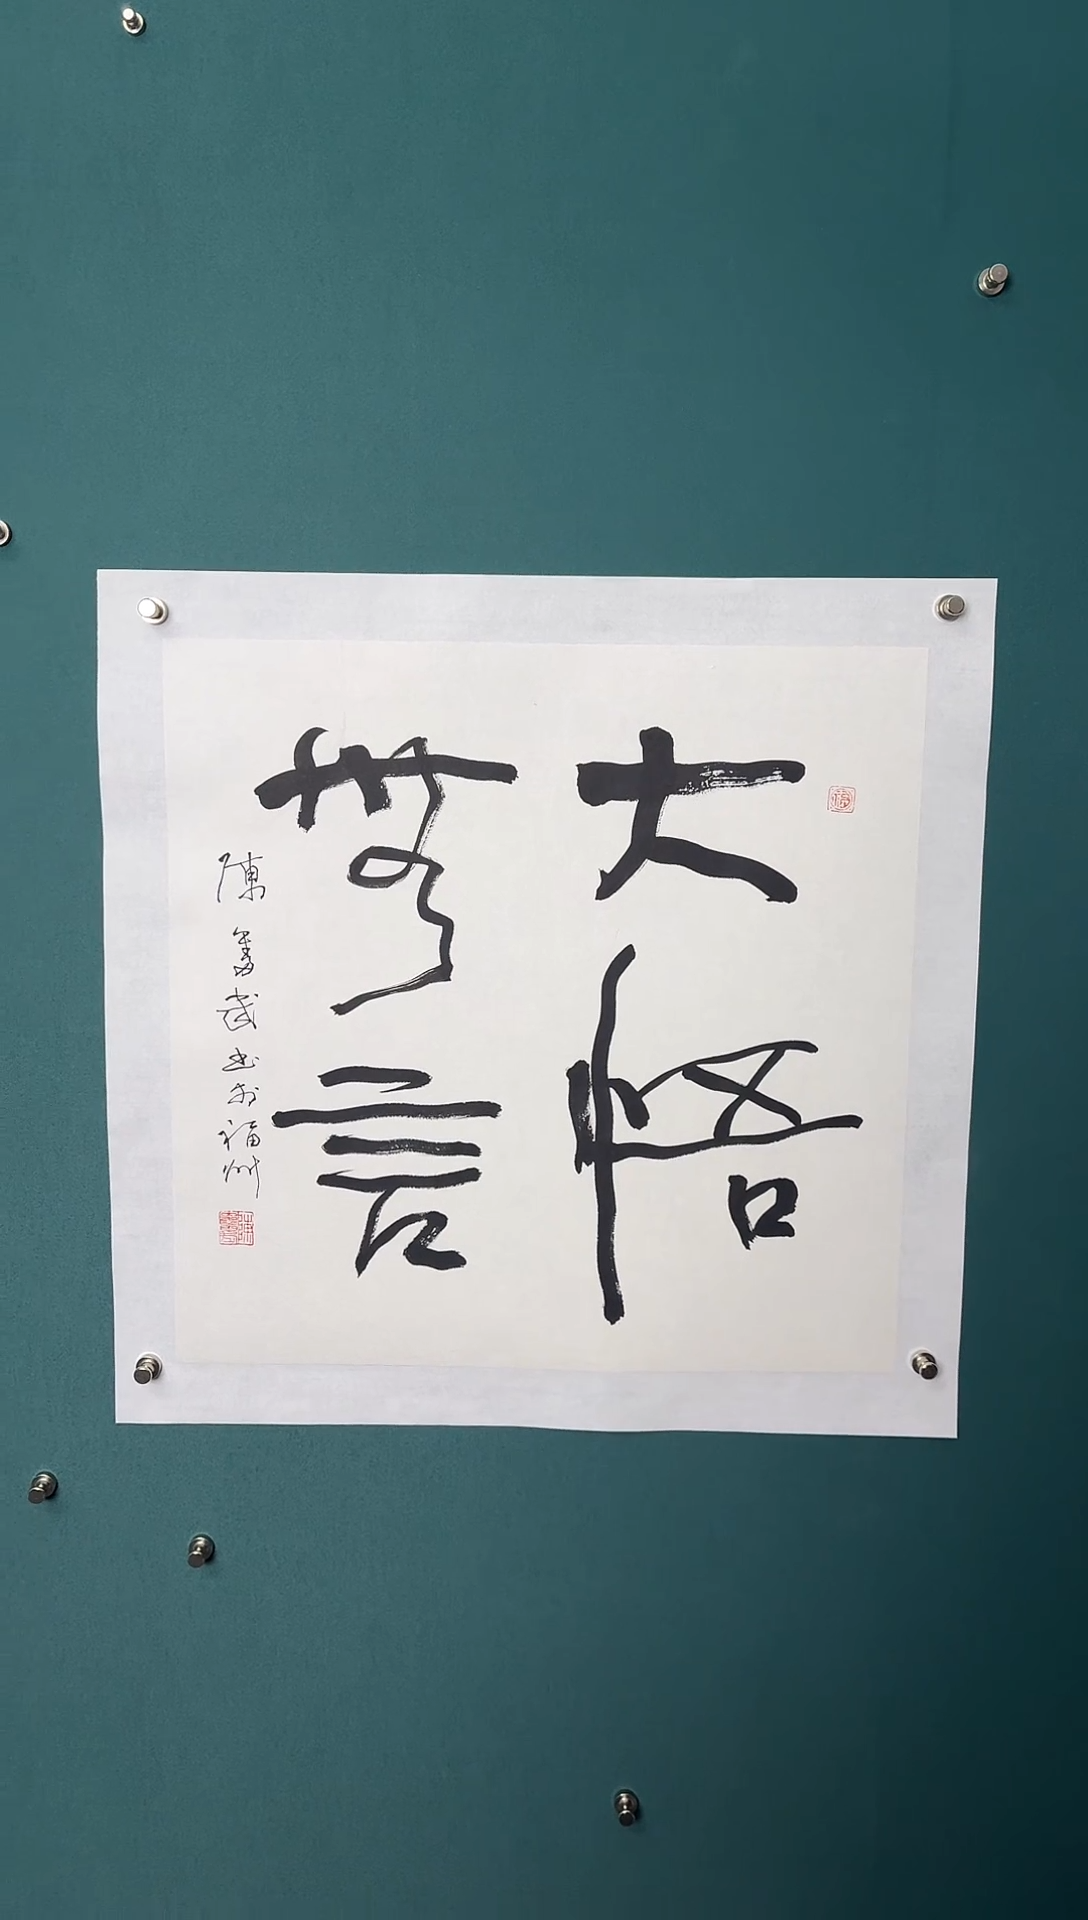 大悟
無言
陳奮武書於福州